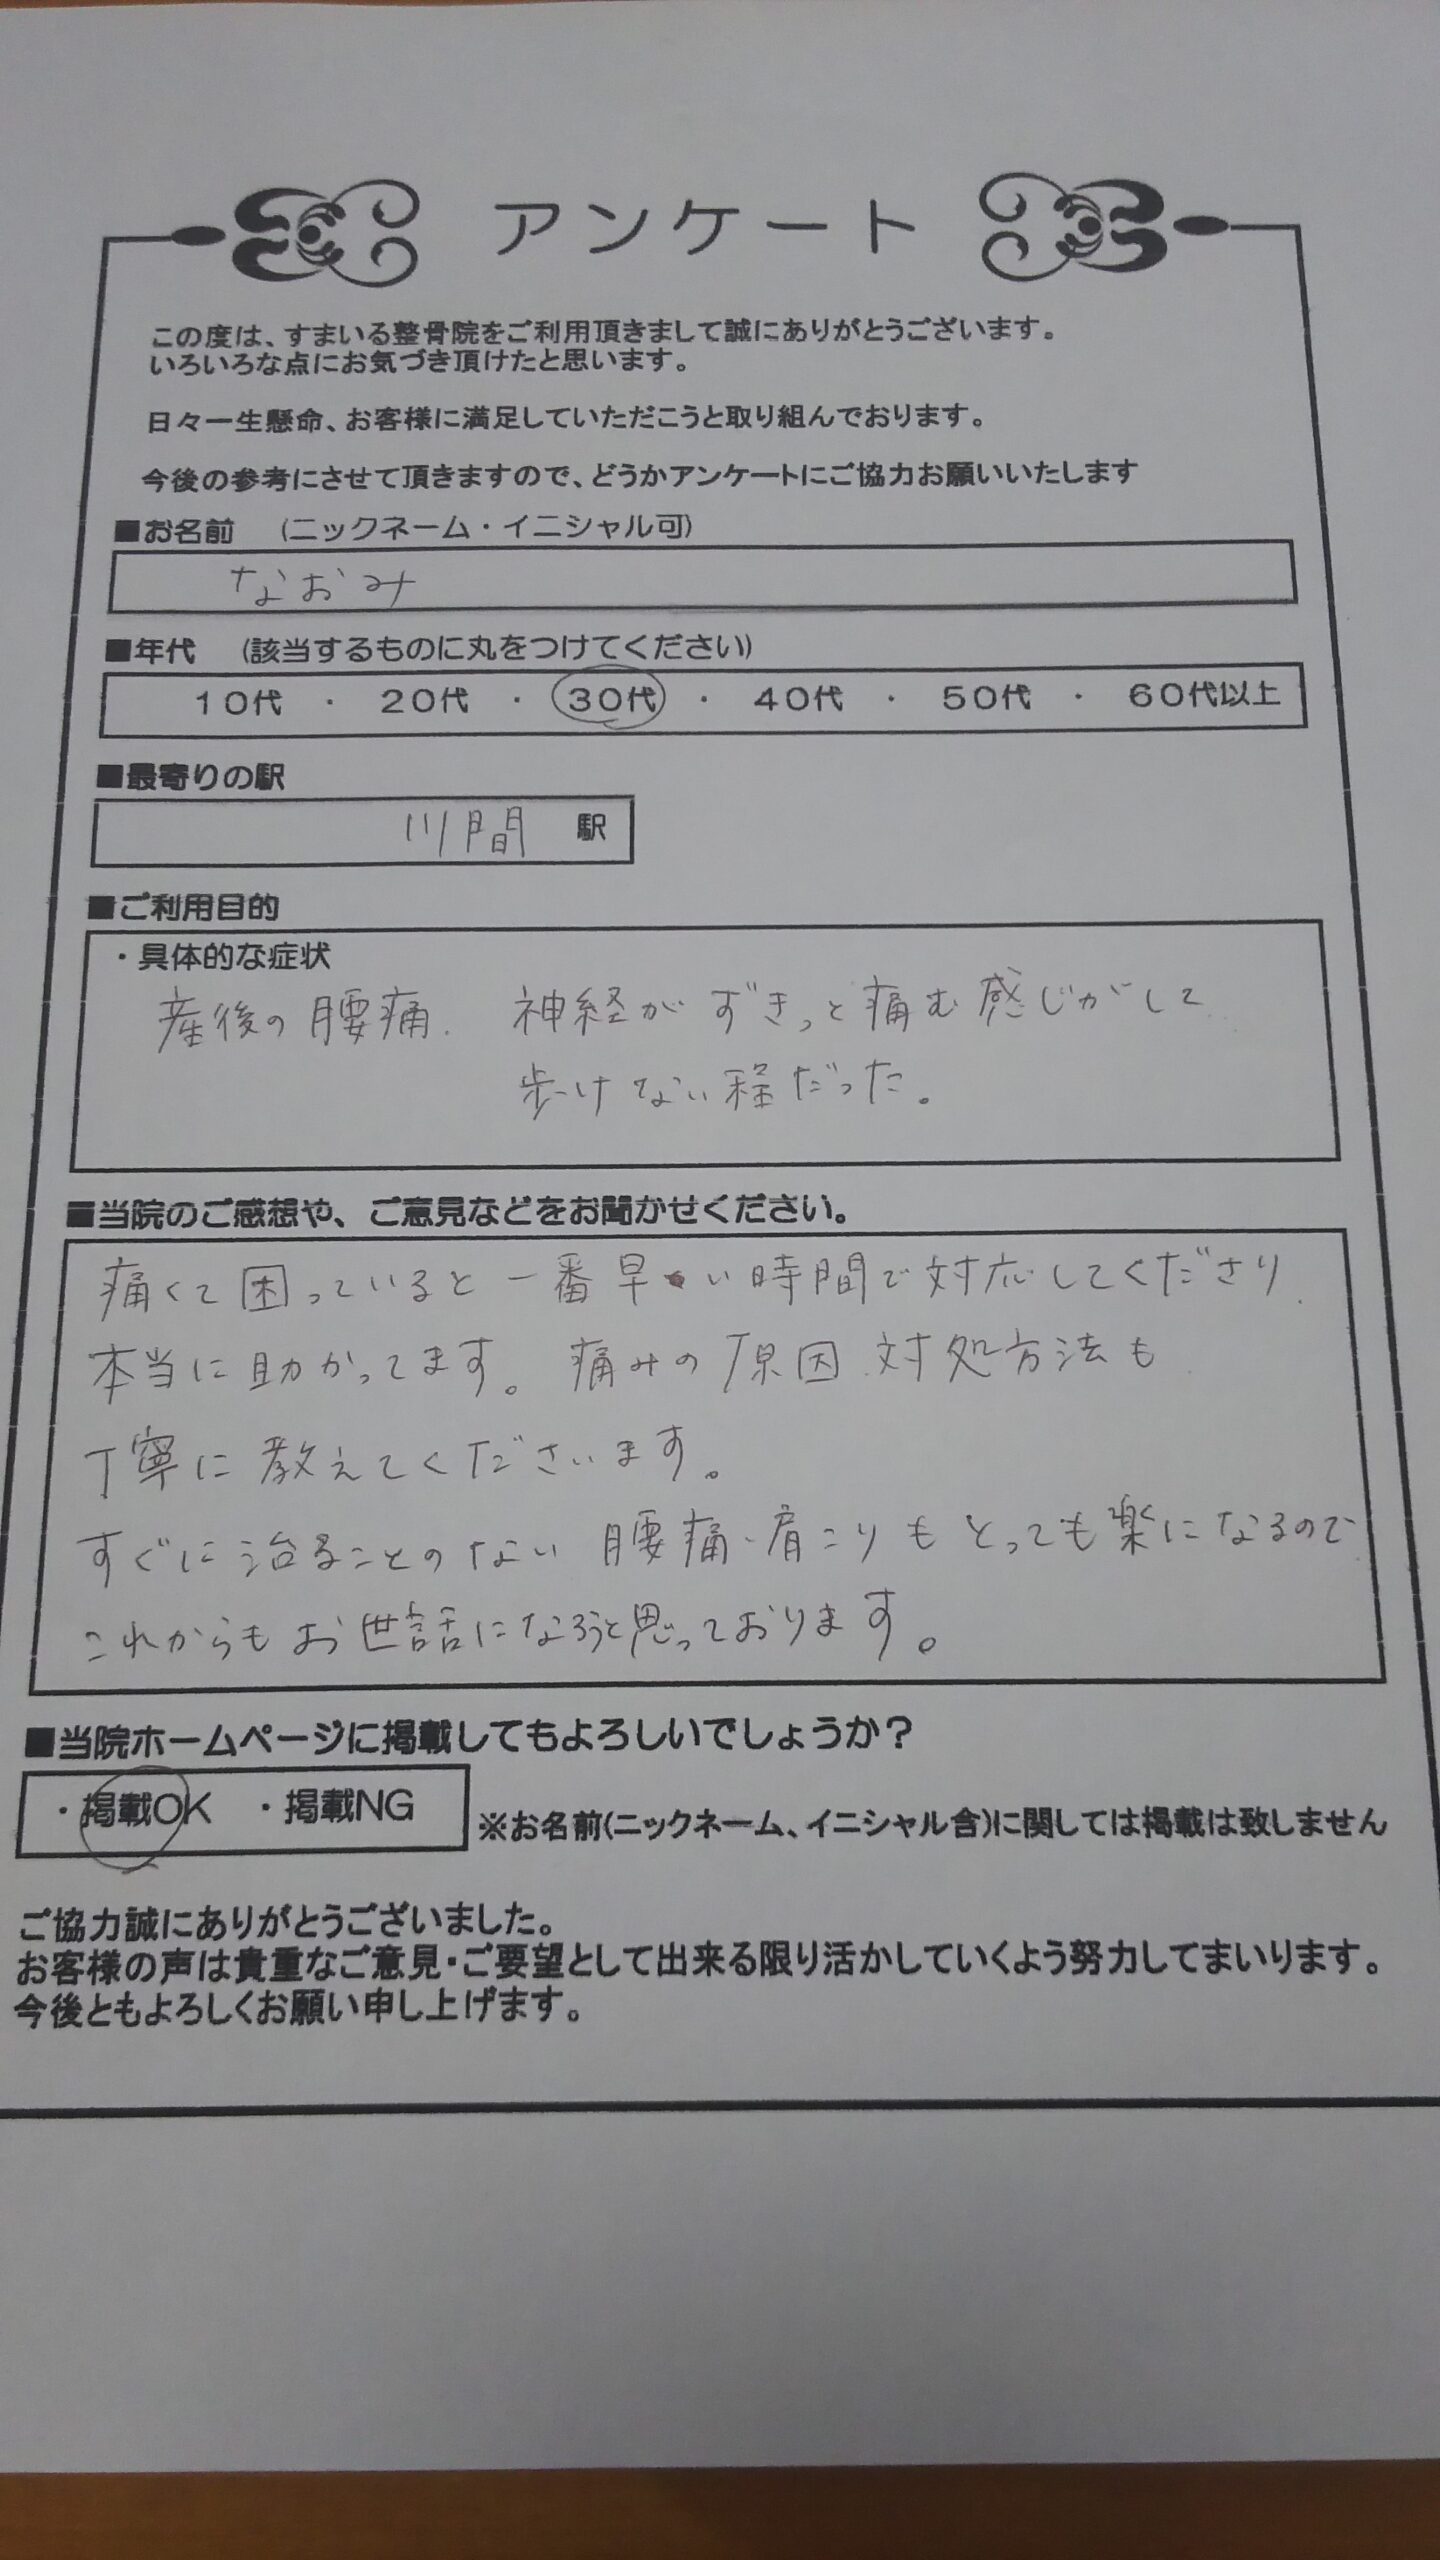 アンケート
この度は、すまいる整骨院をご利用頂きまして誠にありがとうございます。
いろいろな点にお気づき頂けたと思います。
日々一生懸命、お客様に満足していただこうと取り組んでおります。
今後の参考にさせて頂きますので、どうかアンケートにご協力お願いいたします
■お名前 (ニックネーム・イニシャル可)
なおみ
■年代 (該当するものに丸をつけてください)
10代 ・ 20代 ・ 30代 ・ 40代 ・ 50代 ・ 60代以上
■最寄りの駅
川間 駅
■ご利用目的
・具体的な症状
産後の腰痛. 神経がずきっと痛む感じがして
歩けない程だった。
■当院のご感想や、ご意見などをお聞かせください。
痛くて困っていると一番早い時間で対応してくださり
本当に助かってます。痛みの原因 対処方法も
丁寧に教えてくださいます。
すぐに治ることのない 腰痛・肩こりもとっても楽になるので
これからもお世話になろうと思っております。
■当院ホームページに掲載してもよろしいでしょうか？
・掲載OK ・掲載NG
※お名前(ニックネーム、イニシャル含)に関しては掲載は致しません
ご協力誠にありがとうございました。
お客様の声は貴重なご意見・ご要望として出来る限り活かしていくよう努力してまいります。
今後ともよろしくお願い申し上げます。